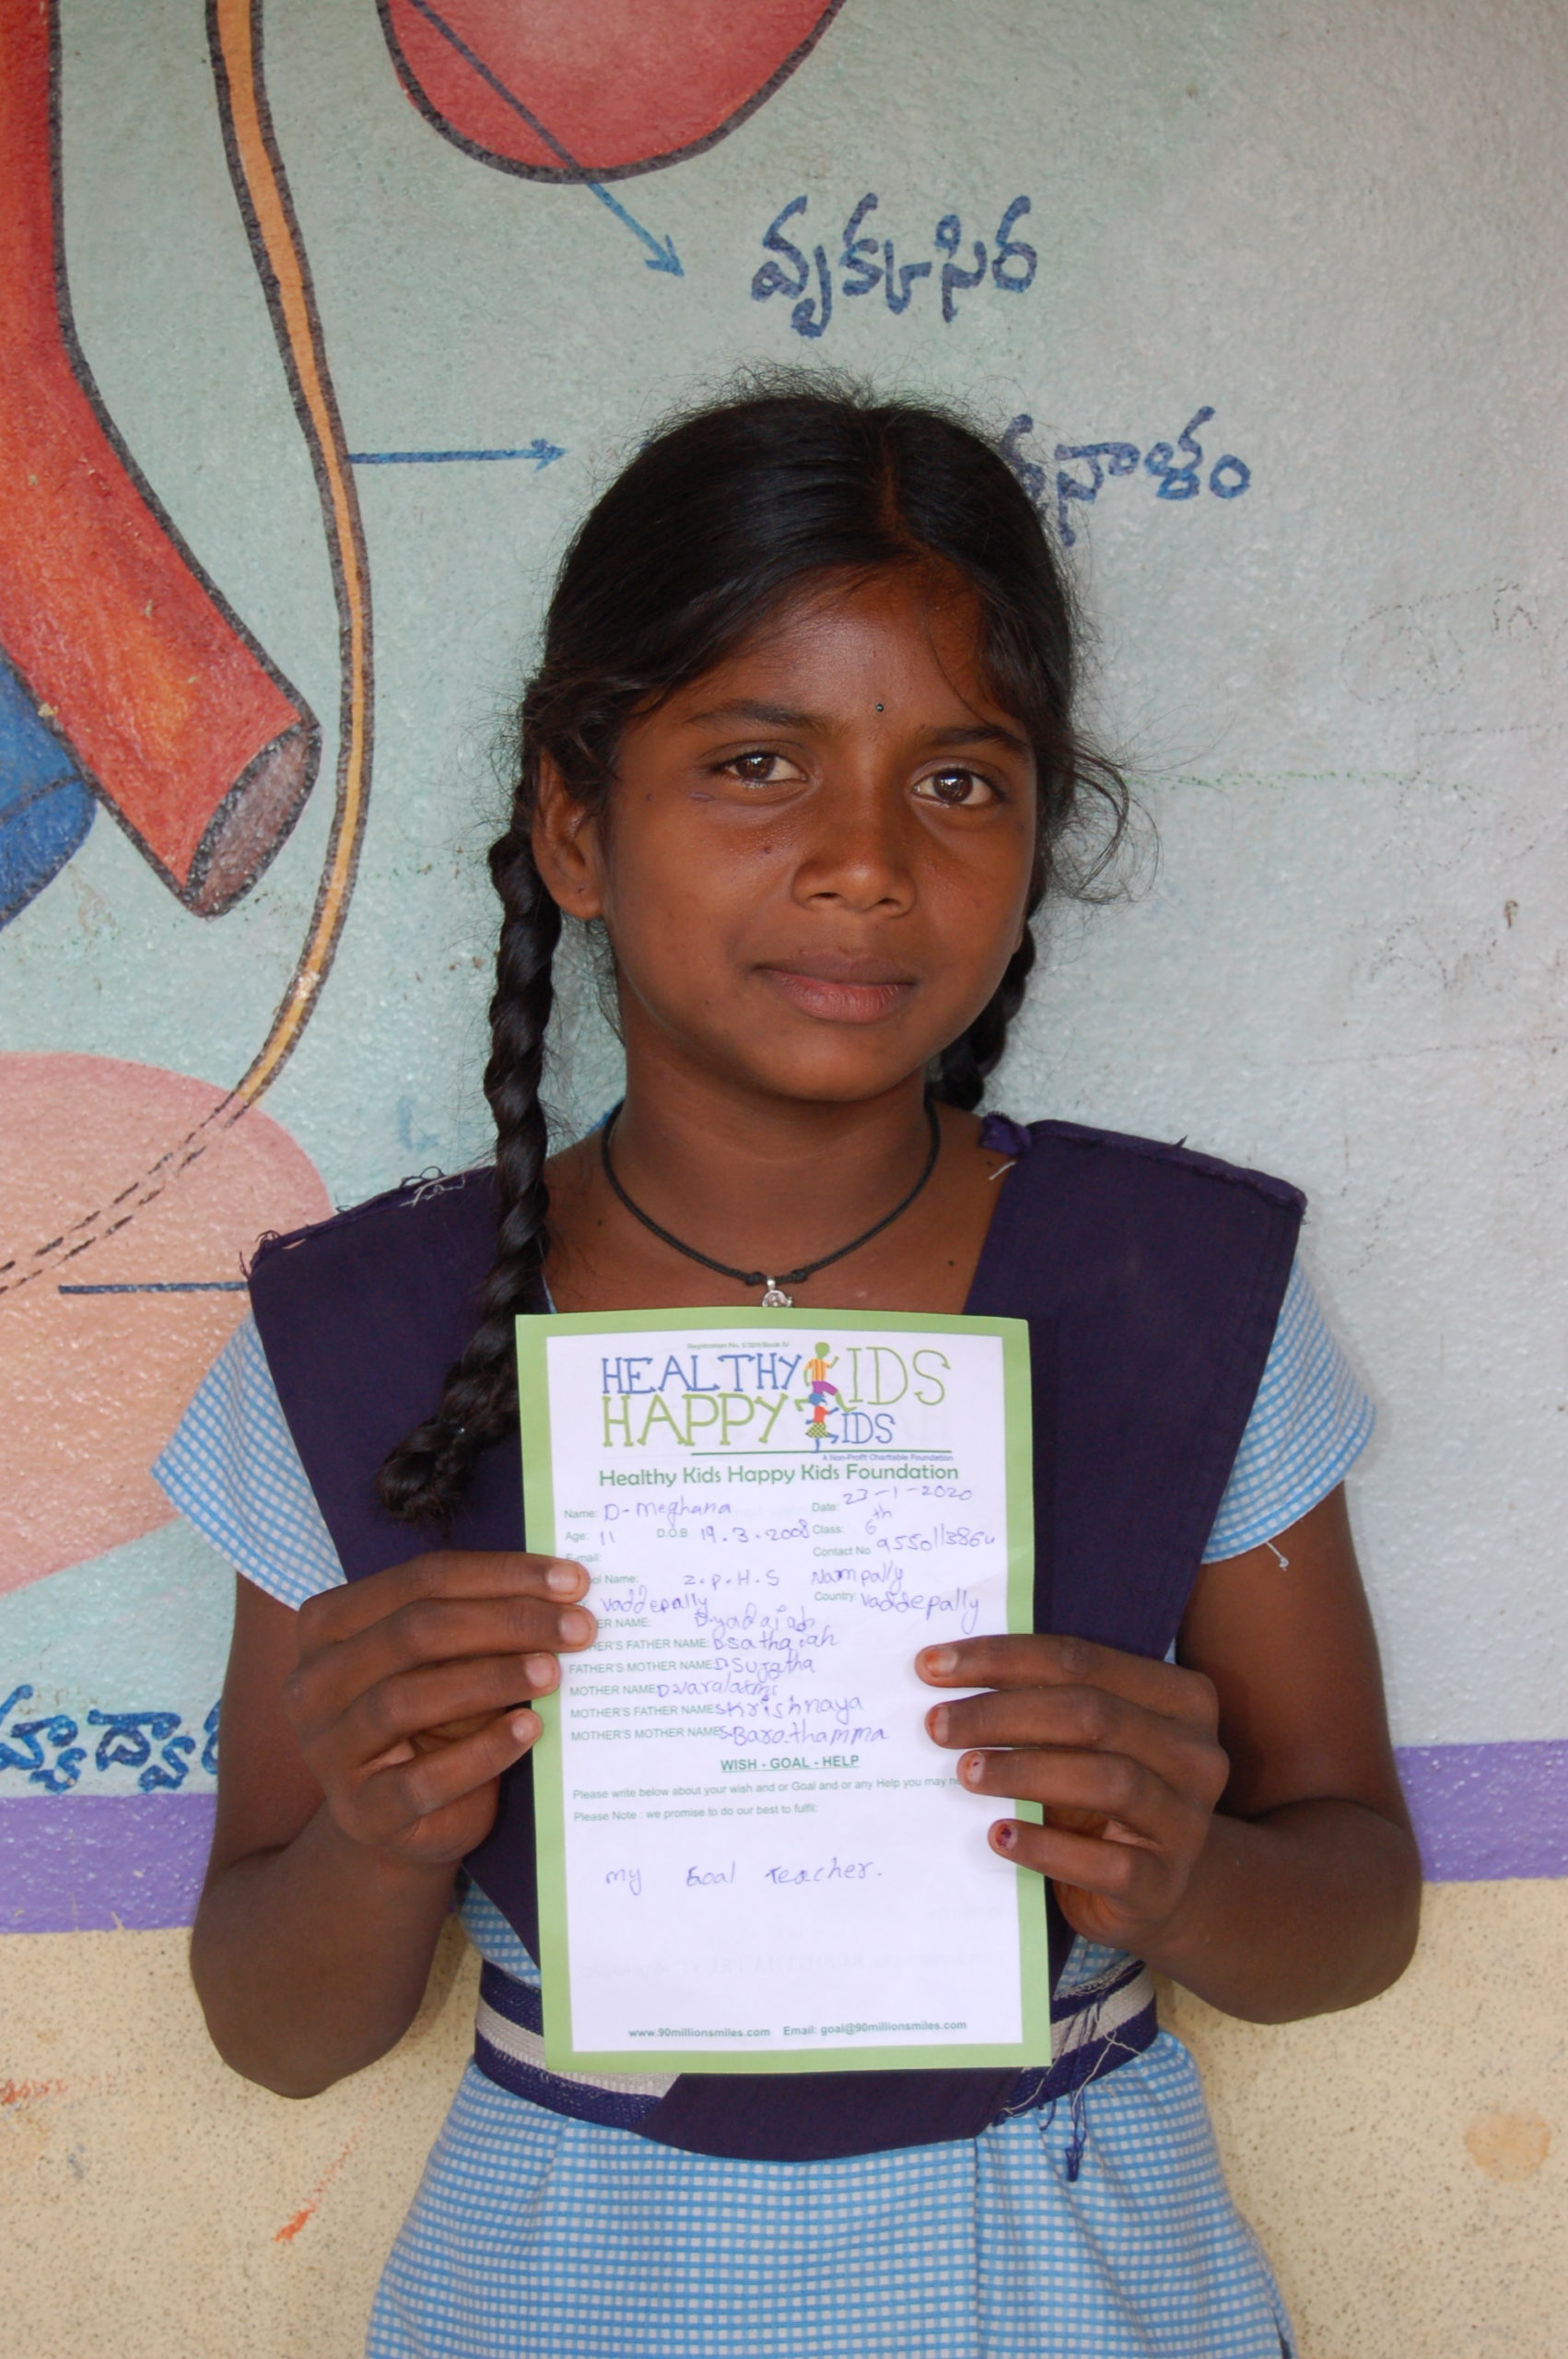 వృక్కసిర
నాళం
Registration No.
HEALTHY KIDS
HAPPY KIDS
A Non-Profit Charitable Foundation
Healthy Kids Happy Kids Foundation
Name: D-Meghana Date: 23-1-2020
Age: 11 D.O.B 19.3.2008 Class: 6th
Contact No 9550113864
Name: Z.P.H.S Nampally
Vaddepally Country: Vaddepally
NAME: D.yadaiah
FATHER NAME: D.Sathaiah
FATHER'S MOTHER NAME D.Sujatha
MOTHER NAME
MOTHER'S FATHER NAME S.Krishnaya
MOTHER'S MOTHER NAME S.Barathamma
WISH - GOAL - HELP
Please write below about your wish and or Goal and or any Help you may
Please Note : we promise to do our best to fulfil:
my Goal Teacher.
www.90millionsmiles.com Email: goal@90millionsmiles.com